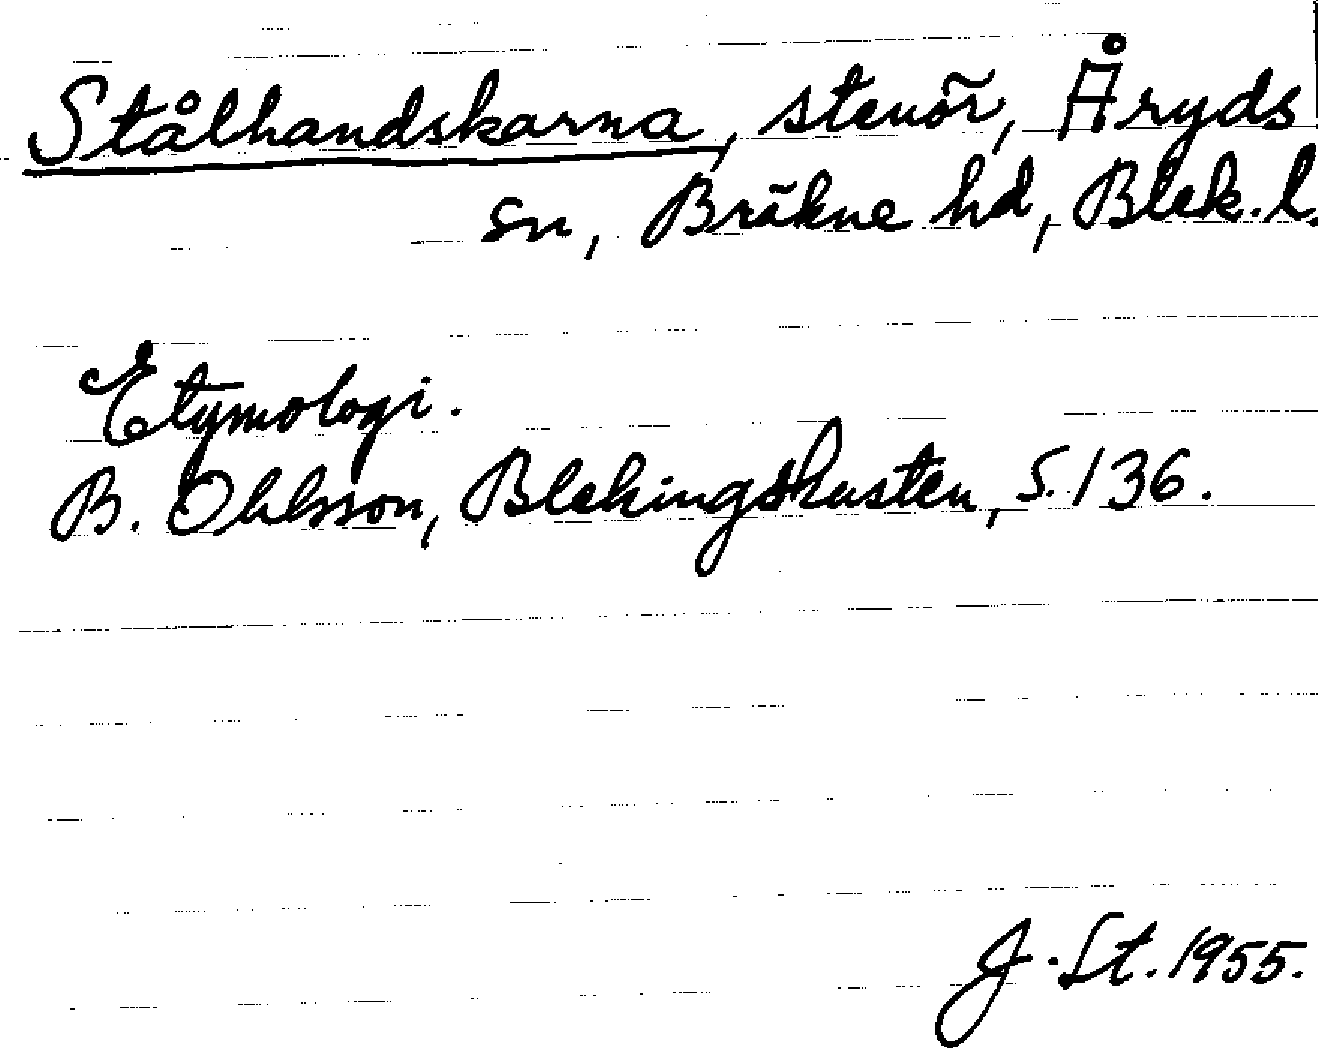 Stålhandskarna, stenör, Åryds
sn, Bräkne hd, Blek. l.
Etymologi.
B. Ohlsson, Blekingskusten, S. 136.
J. St. 1955.